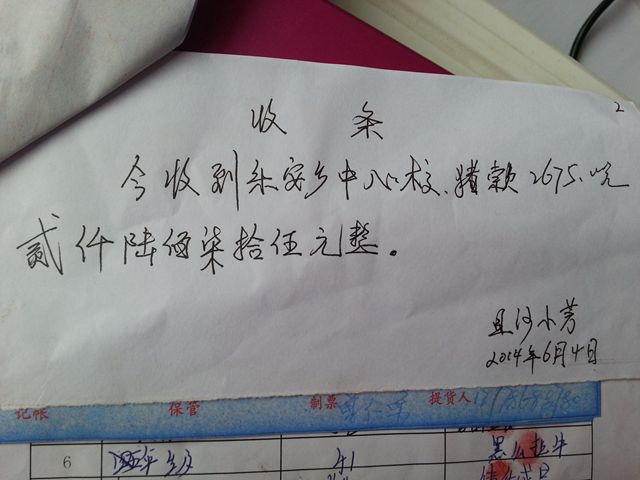 2
收条
今收到永安乡中心校、猪款2675.元
贰仟陆佰柒拾伍元整。
且沙小芳
2014年6月4日
记帐 保管 制票 提货人
6 41